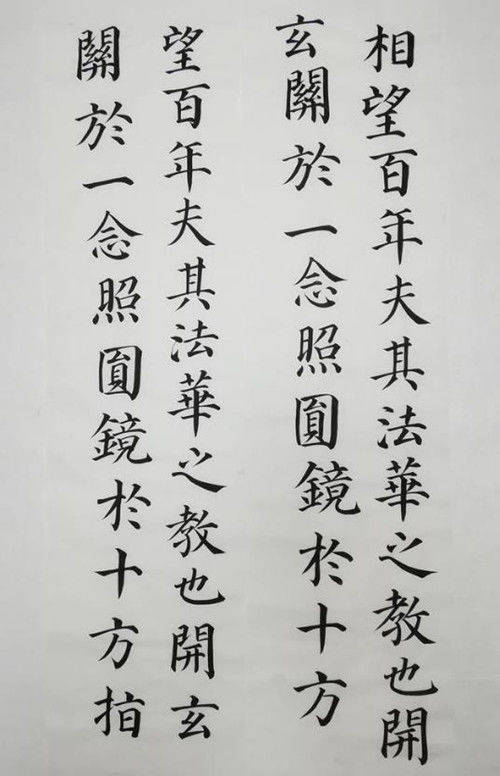 相望百年夫其法華之教也開
玄關於一念照圓鏡於十方
望百年夫其法華之教也開玄
關於一念照圓鏡於十方指